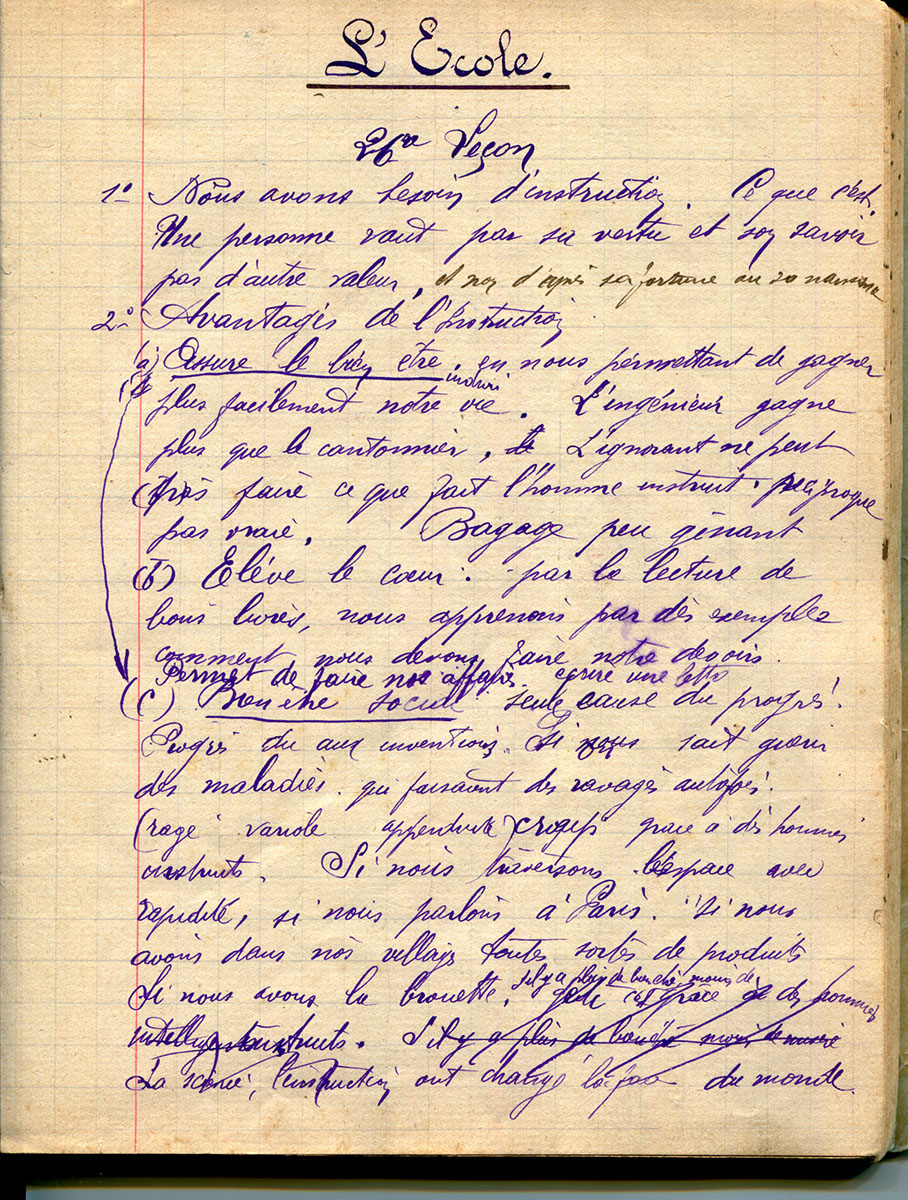 L'Ecole.
26e Leçon
1° Nous avons besoin d'instruction. Ce que c'est.
Une personne vaut par sa vertu et son savoir
pas d'autre valeur, et non d'après sa fortune ou sa naissance
2° Avantages de l'Instruction
(a) Assure le bien être, en nous permettant de gagner
plus facilement notre vie. L'ingénieur gagne
plus que le cantonnier, L'ignorant ne peut
pas faire ce que fait l'homme instruit. réciproque
pas vraie. Bagage peu gênant
(b) Elève le cœur : par la lecture de
bons livres, nous apprenons par des exemples
comment nous devons faire notre devoirs.
Permet de faire nos affaires. écrire une lettre
(C) Bien être social seule cause du progrès.
Progrès du aux inventions. Si nous sait guérir
des maladies qui faisaient des ravages autrefois.
(rage variole appendicite) grace à des hommes
instruits. Si nous traversons l'espace avec
rapidité, si nous parlons à Paris. si nous
avons dans nos villages toutes sortes de produits
s'il y a plus de bonté moins de
Si nous avons la brouette, grâce à des hommes
intelligents instruits. S'il y a plus de bonté moins de misère
La science, l'instruction ont changé la face du monde.